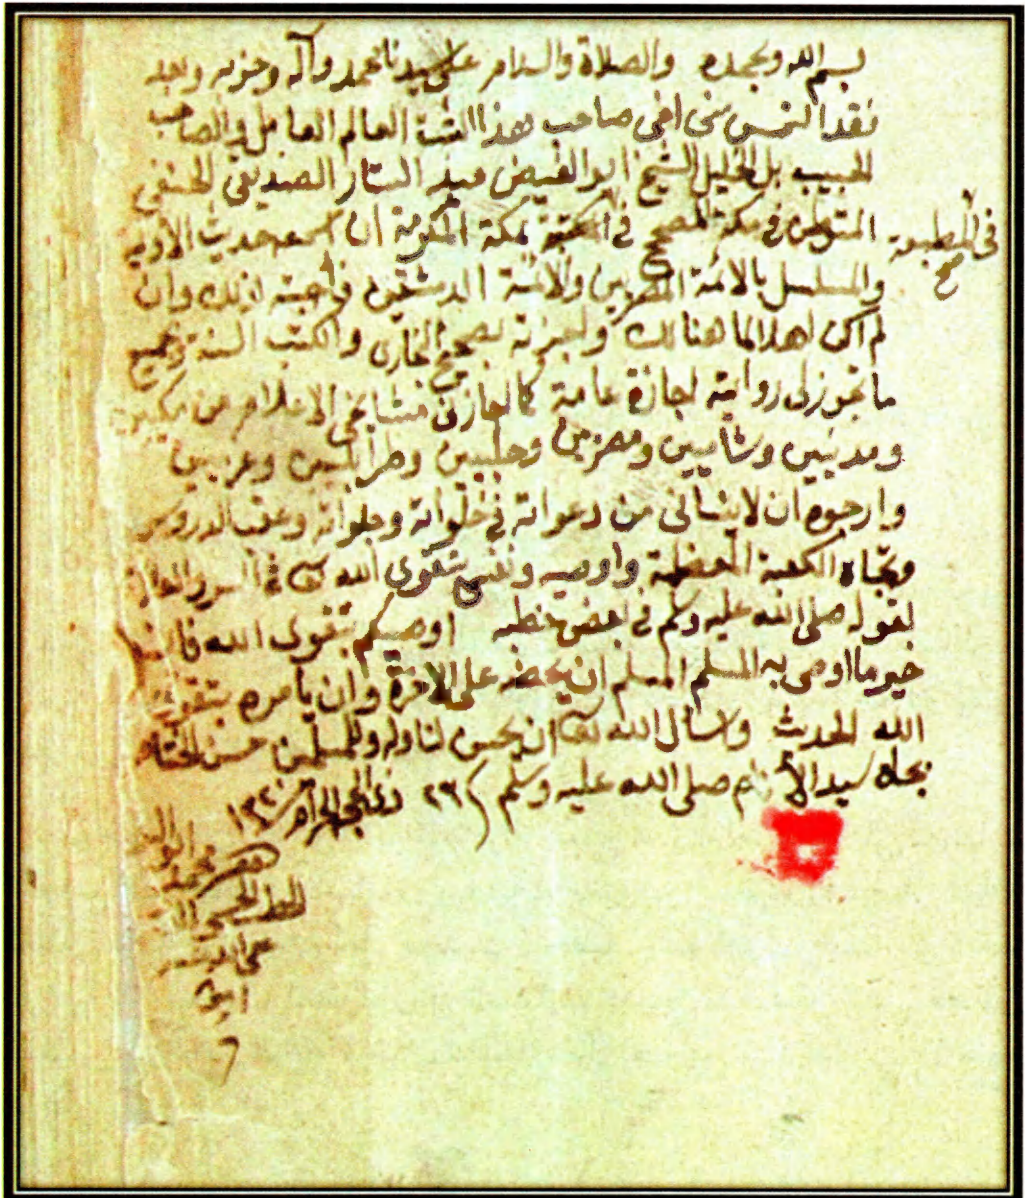 بسم الله وبحمده والصلاة والسلام على سيدنا محمد وآله وحزبه وبعد
فقد التمس مني اخي صاحب هذا الثبت العالم العامل والصاحب
الحبيب بل الخليل الشيخ ابو الفيض عبد الستار الصديقي الحنفي
المتوطن في مكة المصحح في المكتبة بمكة المكرمة ان اسمعه حديث الأولية
في المطبعة صح
والمسلسل بالائمة المصريين والائمة الدمشقيين فأجبته لذلك وان
لم اكن اهلا لما هنالك واجزته بصحيح البخاري والكتب الستة وجميع
ما تجوز لي روايته اجازة عامة كما اجازني مشايخي الاعلام من مكيين
ومدنيين وشاميين ومصريين وحلبيين وطرابلسيين وغربيين
وارجوه ان لا ينساني من دعواته في خلواته وجلواته وعقب الدروس
وتجاه الكعبة المعظمة واوصيه ونفسي بتقوى الله تعالى في السر والعلن
لقوله صلى الله عليه وسلم في بعض خطبه اوصيكم بتقوى الله فانه
خير ما اوصى به المسلم المسلم ان يحضه على الآخرة وان يأمره بتقوى
الله الحديث واسأل الله تعالى ان يحسن لنا وله وللمسلمين حسن الختام
بجاه سيد الأنام صلى الله عليه وسلم ٢٩ ذي الحجة الحرام